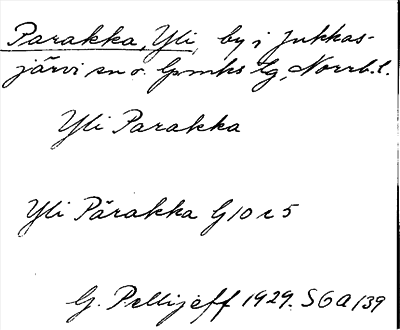 Parakka, Yli, by i Jukkas-
järvi sn o. lpmks lg, Norrb. l.
Yli Parakka
Yli Parakka G10 r 5
G. Pellijeff 1929. SOA 139